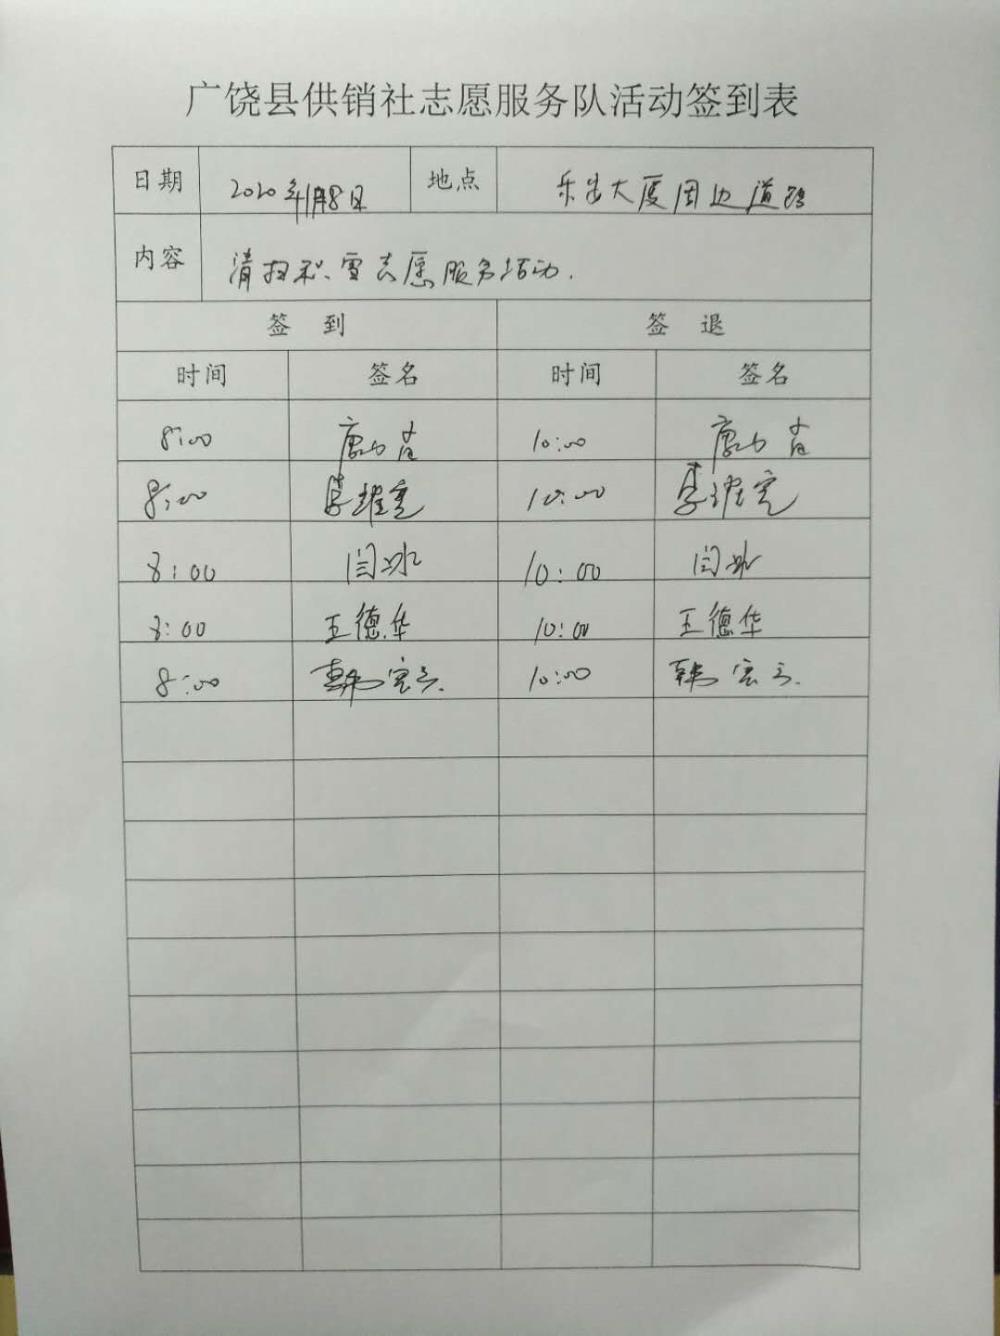 广饶县供销社志愿服务队活动签到表
日期 2020年1月8日 地点 乐安大厦周边道路
内容 清扫积雪志愿服务活动.
签 到 签 退
时间 签名 时间 签名
8:00 10:00
8:00 李 10:00 李
8:00 闫冰 10:00 闫冰
8:00 王德华 10:00 王德华
8:00 韩宏 10:00 韩宏